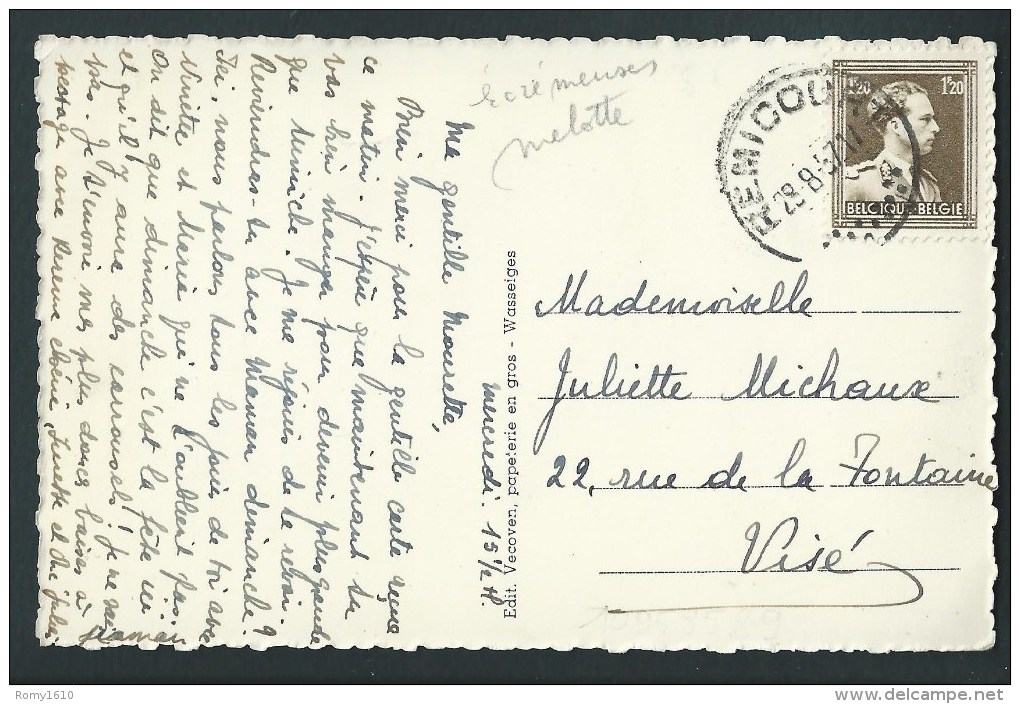 Ecrémeuses
melotte
REMICOURT
28-8-57 17
1F20 1F20
BELGIQUE-BELGIË
Mercredi. 15 1/2 H.
Ma gentille Mounette,
Bien merci pour la gentille carte reçue
ce matin. J'espère que maintenant tu
vas bien manger pour devenir plus grande
que Mimiche. Je me réjouis de te revoir.
Reviendras-tu avec Maman dimanche ?
Ici, nous parlons tous les jours de toi avec
Ninette et qui ne t'oublient pas.
On dit que dimanche c'est la fête ici
et qu'il y aura des carrousels ! je ne sais
pas. Je t'envoie mes plus doux baisers à
partager avec Ninette et
Maman
Edit. Vecoven, papeterie en gros - Wasseiges
Mademoiselle
Juliette Michaux
22, rue de la Fontaine
Visé
Romy1610
delcampe.net